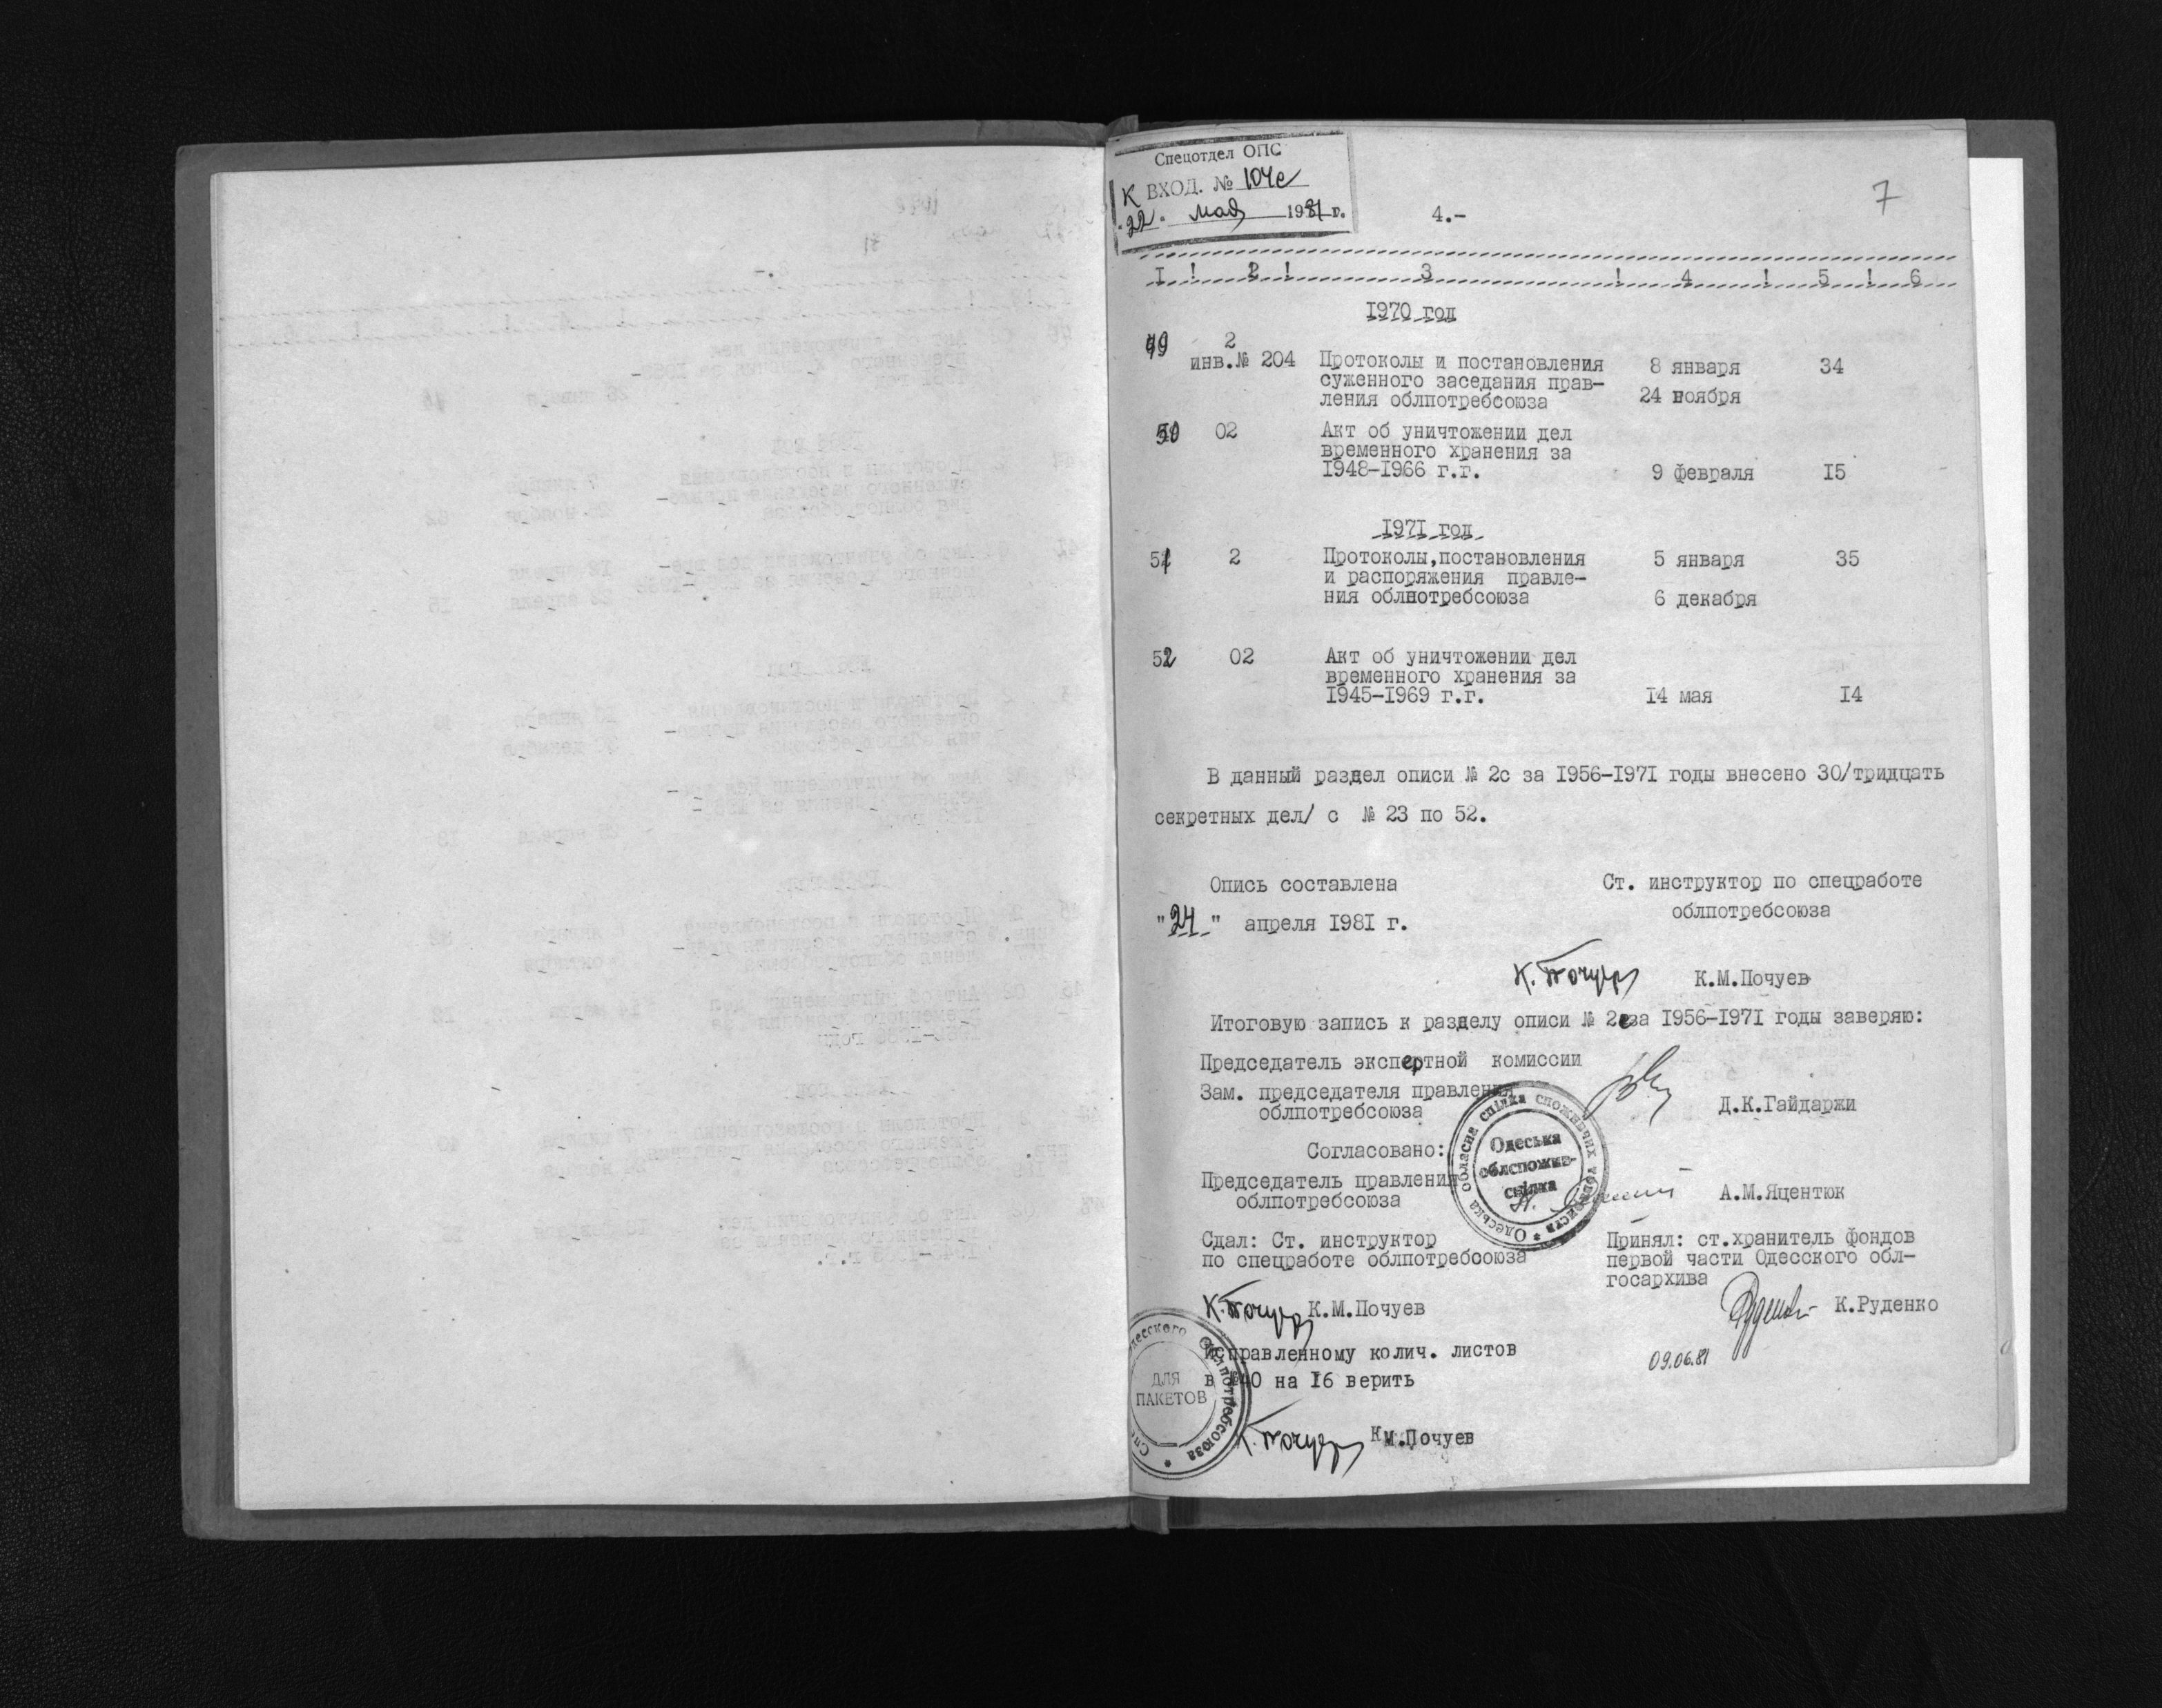 Спецотдел ОПС
К ВХОД. № 104с
"22" мая 1981 г.
4.-
7
I ! 2 ! 3 ! 4 ! 5 ! 6
1970 год
49 2
инв.№ 204 Протоколы и постановления 8 января 34
суженного заседания прав-
ления облпотребсоюза 24 ноября
50 02 Акт об уничтожении дел
временного хранения за
1948-1966 г.г. 9 февраля 15
1971 год
51 2 Протоколы,постановления 5 января 35
и распоряжения правле-
ния облпотребсоюза 6 декабря
52 02 Акт об уничтожении дел
временного хранения за
1945-1969 г.г. 14 мая 14
В данный раздел описи № 2с за 1956-1971 годы внесено 30/тридцать
секретных дел/ с № 23 по 52.
Опись составлена Ст. инструктор по спецработе
облпотребсоюза
"24" апреля 1981 г.
К.Почуев К.М.Почуев
Итоговую запись к разделу описи № 2с за 1956-1971 годы заверяю:
Председатель экспертной комиссии
Зам. председателя правления
облпотребсоюза Д.К.Гайдаржи
Одеська обласна спілка споживчих товариств
Одеська
облспожив-
спілка
Согласовано:
Председатель правления
облпотребсоюза А.М.Яцентюк
Сдал: Ст. инструктор
по спецработе облпотребсоюза
Принял: ст.хранитель фондов
первой части Одесского обл-
госархива
К.Почуев К.М.Почуев
Руденко К.Руденко
09.06.81
исправленному колич. листов
в №40 на 16 верить
ДЛЯ
ПАКЕТОВ
К.Почуев К.М.Почуев